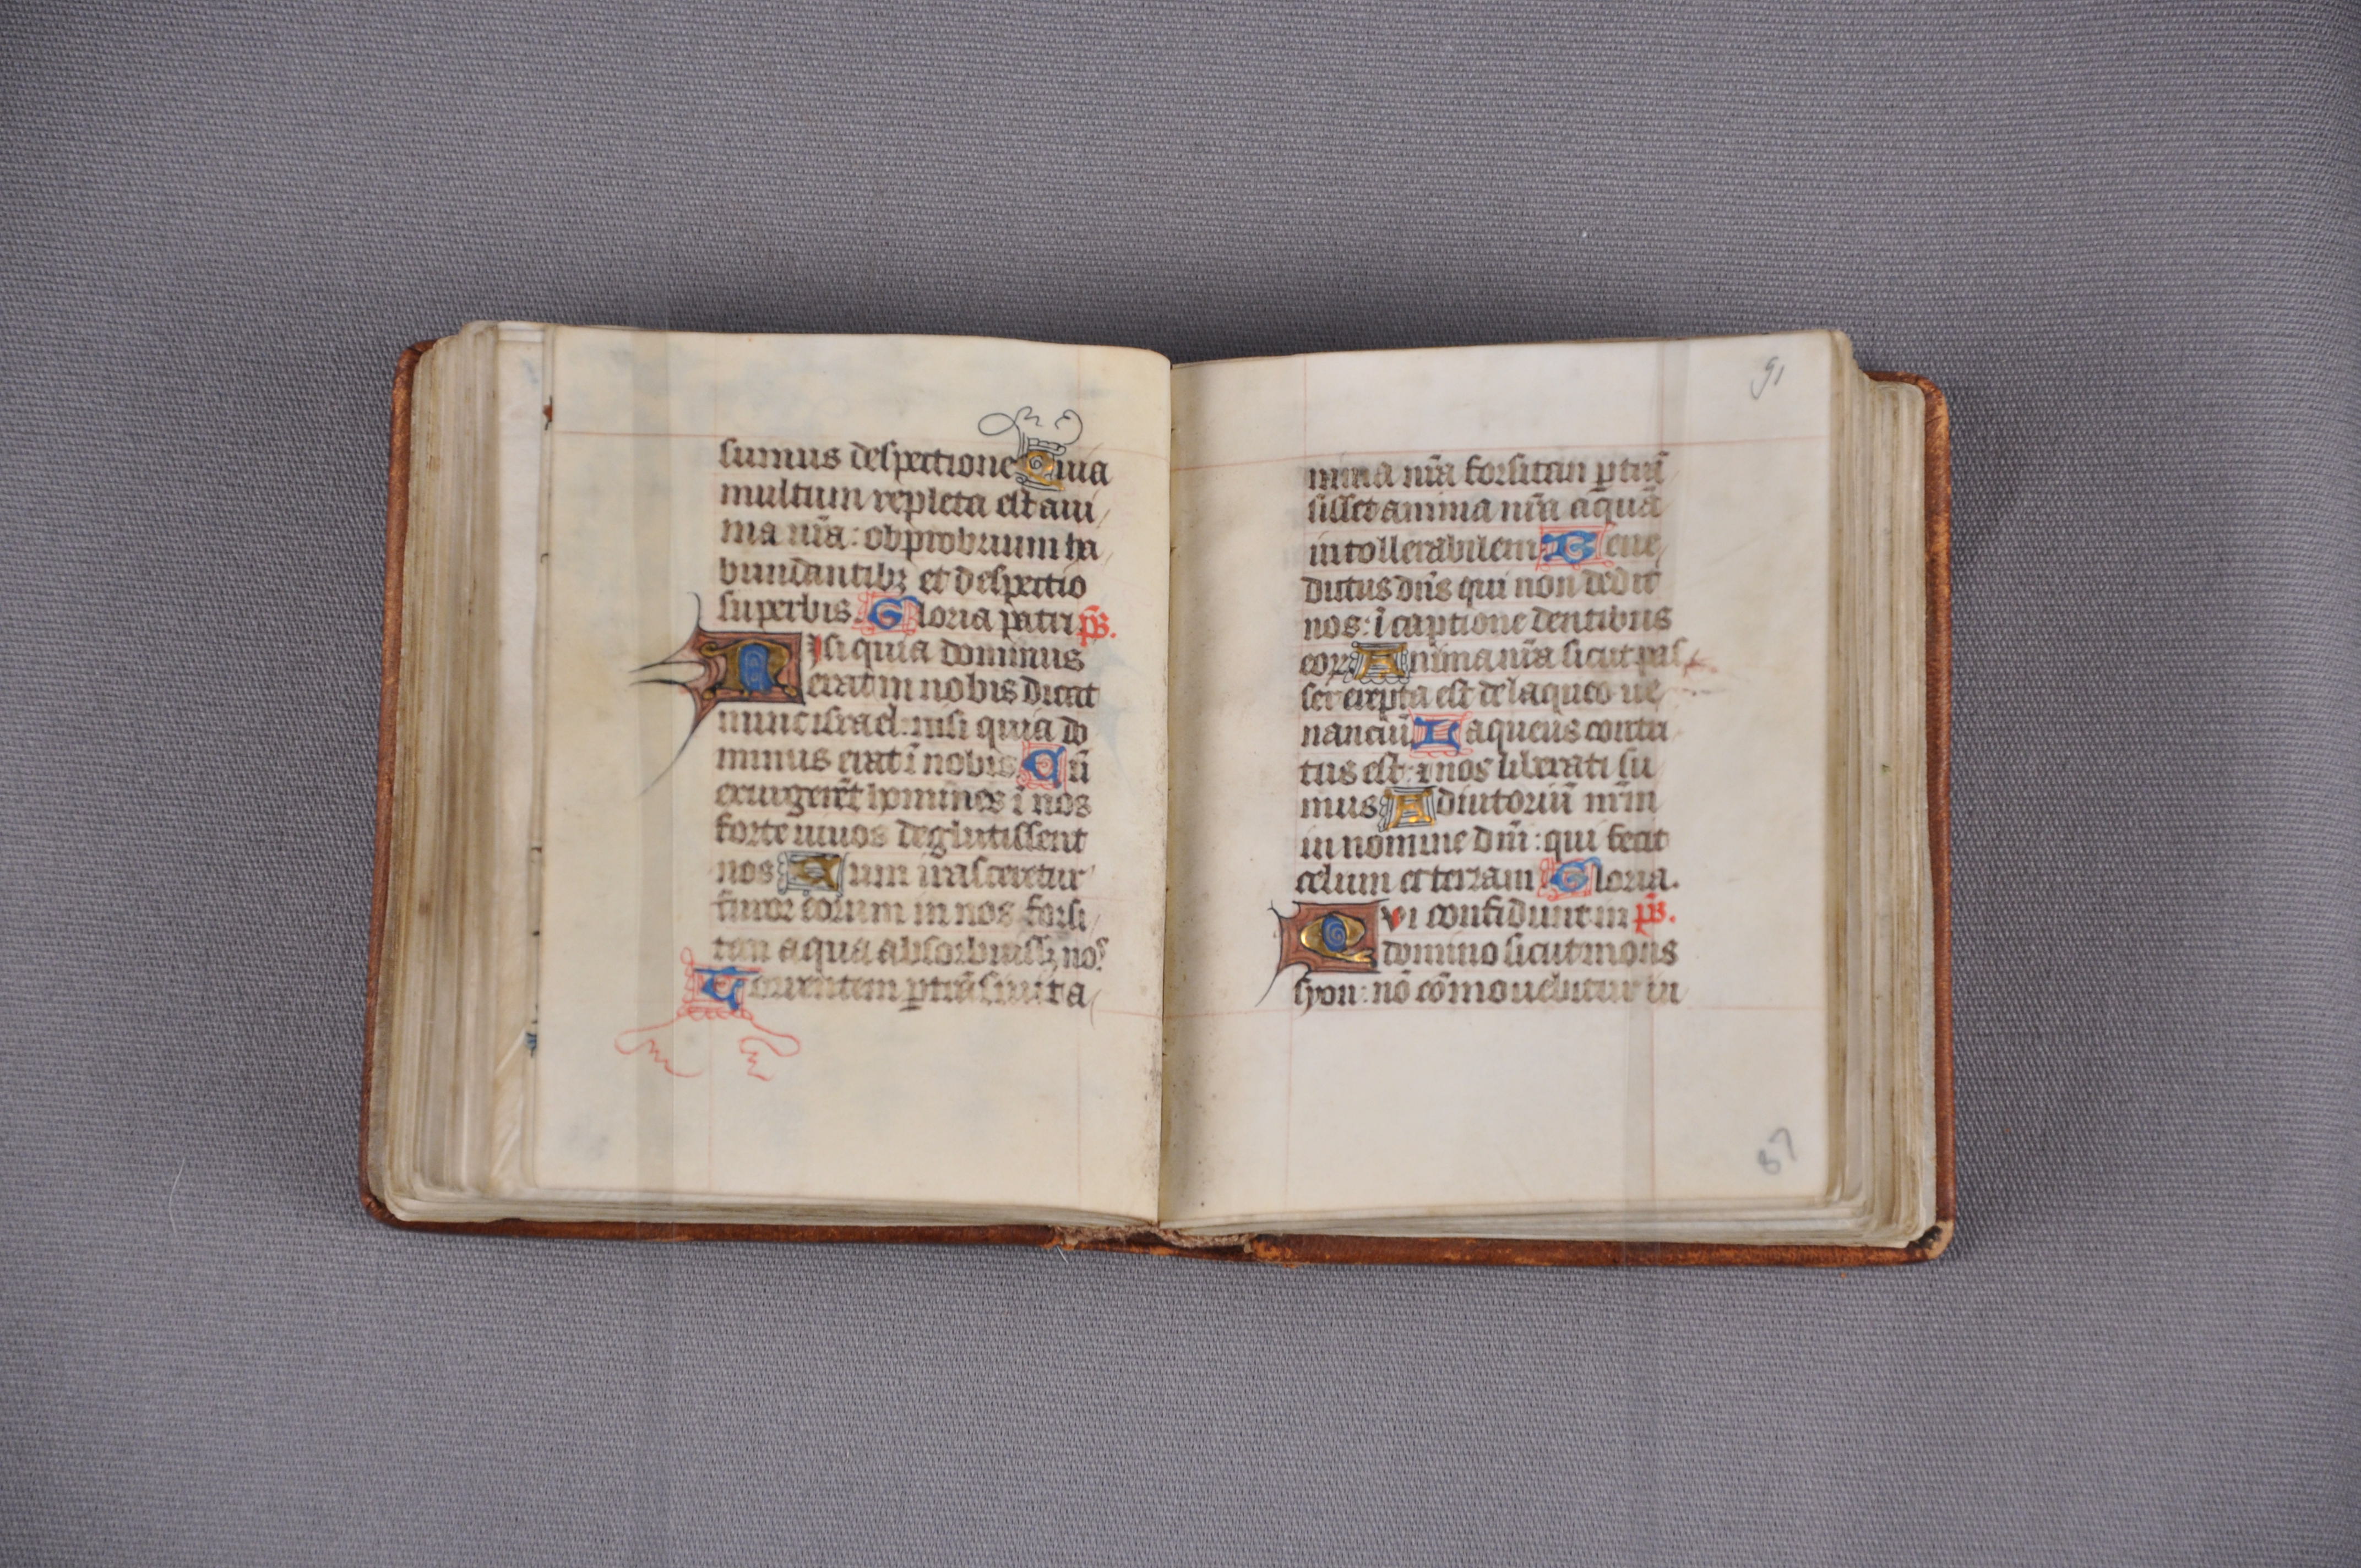 sumus despectione Quia
multum repleta est ani/
ma nr̄a: obprobrium ha
bundantibꝫ et despectio
superbis. Gloria patri. ps̄.
Nisi quia dominus
erat in nobis dicat
nunc israel: nisi quia do
minus erat ī nobis Cū
exurgerēt homines ī nos
forte uiuos deglutissent
nos Cum irasceretur
furor eorum in nos forsi/
tan aqua absorbuissꝫ nos
Torrentem ꝑtrāsiuit a/
91
nima nr̄a forsitan ꝑtrā
sisset anima nr̄a aquā
intollerabilem Bene/
dictus dn̄s qui non dedit
nos: ī captione dentibus
eoꝝ Anima nr̄a sicut pas/
ser erepta est de laqueo ue/
nanciū Laqueus contri/
tus est: ⁊ nos liberati su/
mus Adiutoriū nr̄m
in nomine dn̄i: qui fecit
celum et terram Gloria.
Qui confidunt in ps̄.
domino sicut mons
syon: nō cōmouebitur in
87